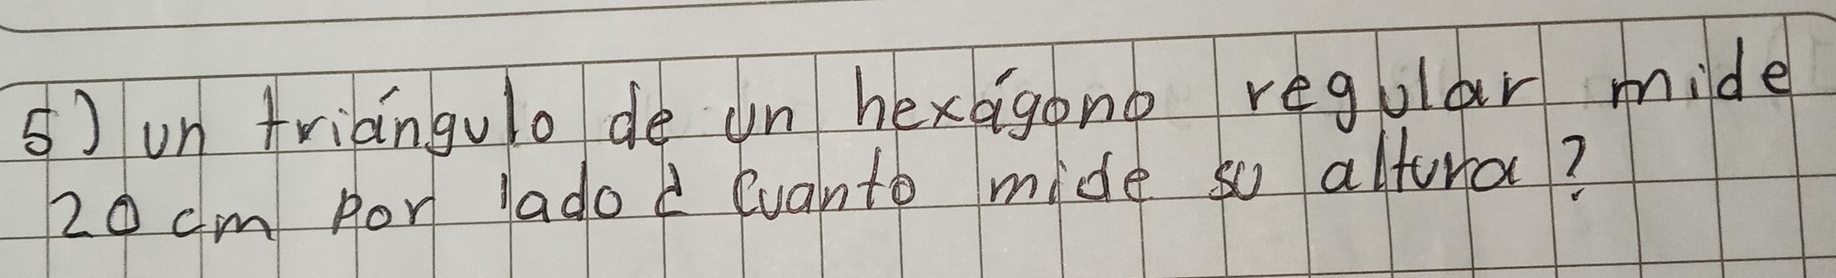 5) un triángulo de un hexágono regular mide
20 cm por lado ¿ Cuanto mide su altura?